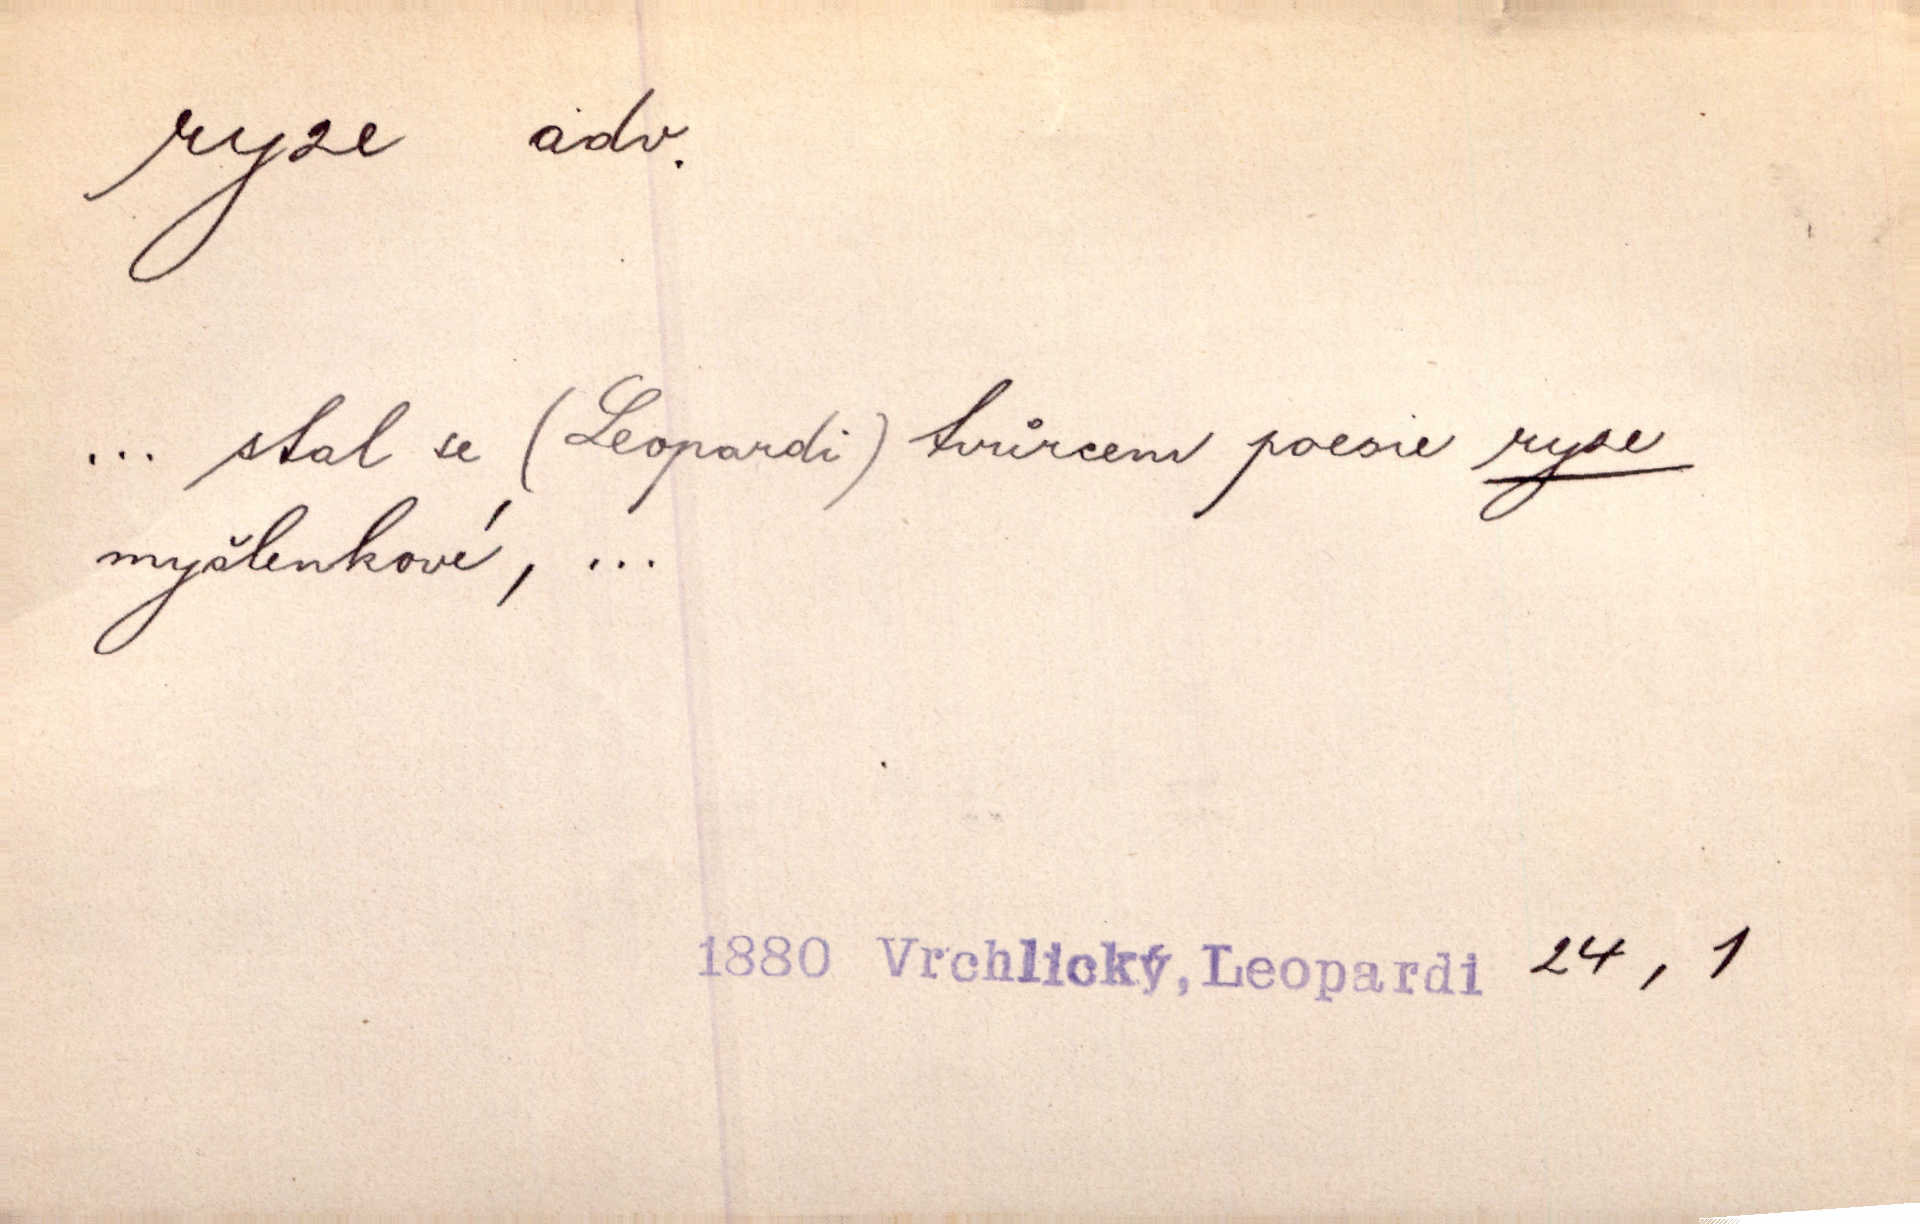 ryze adv.
... stal se (Leopardi) tvůrcem poesie ryze
myšlenkové, ...
1880 Vrchlický, Leopardi 24, 1